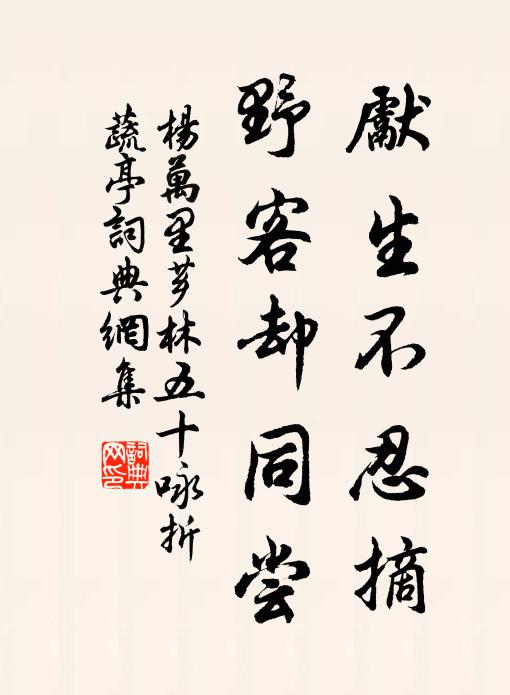 獻生不忍摘
野客却同尝
楊萬里芗林五十咏折
蔬亭詞典網集
詞典网印